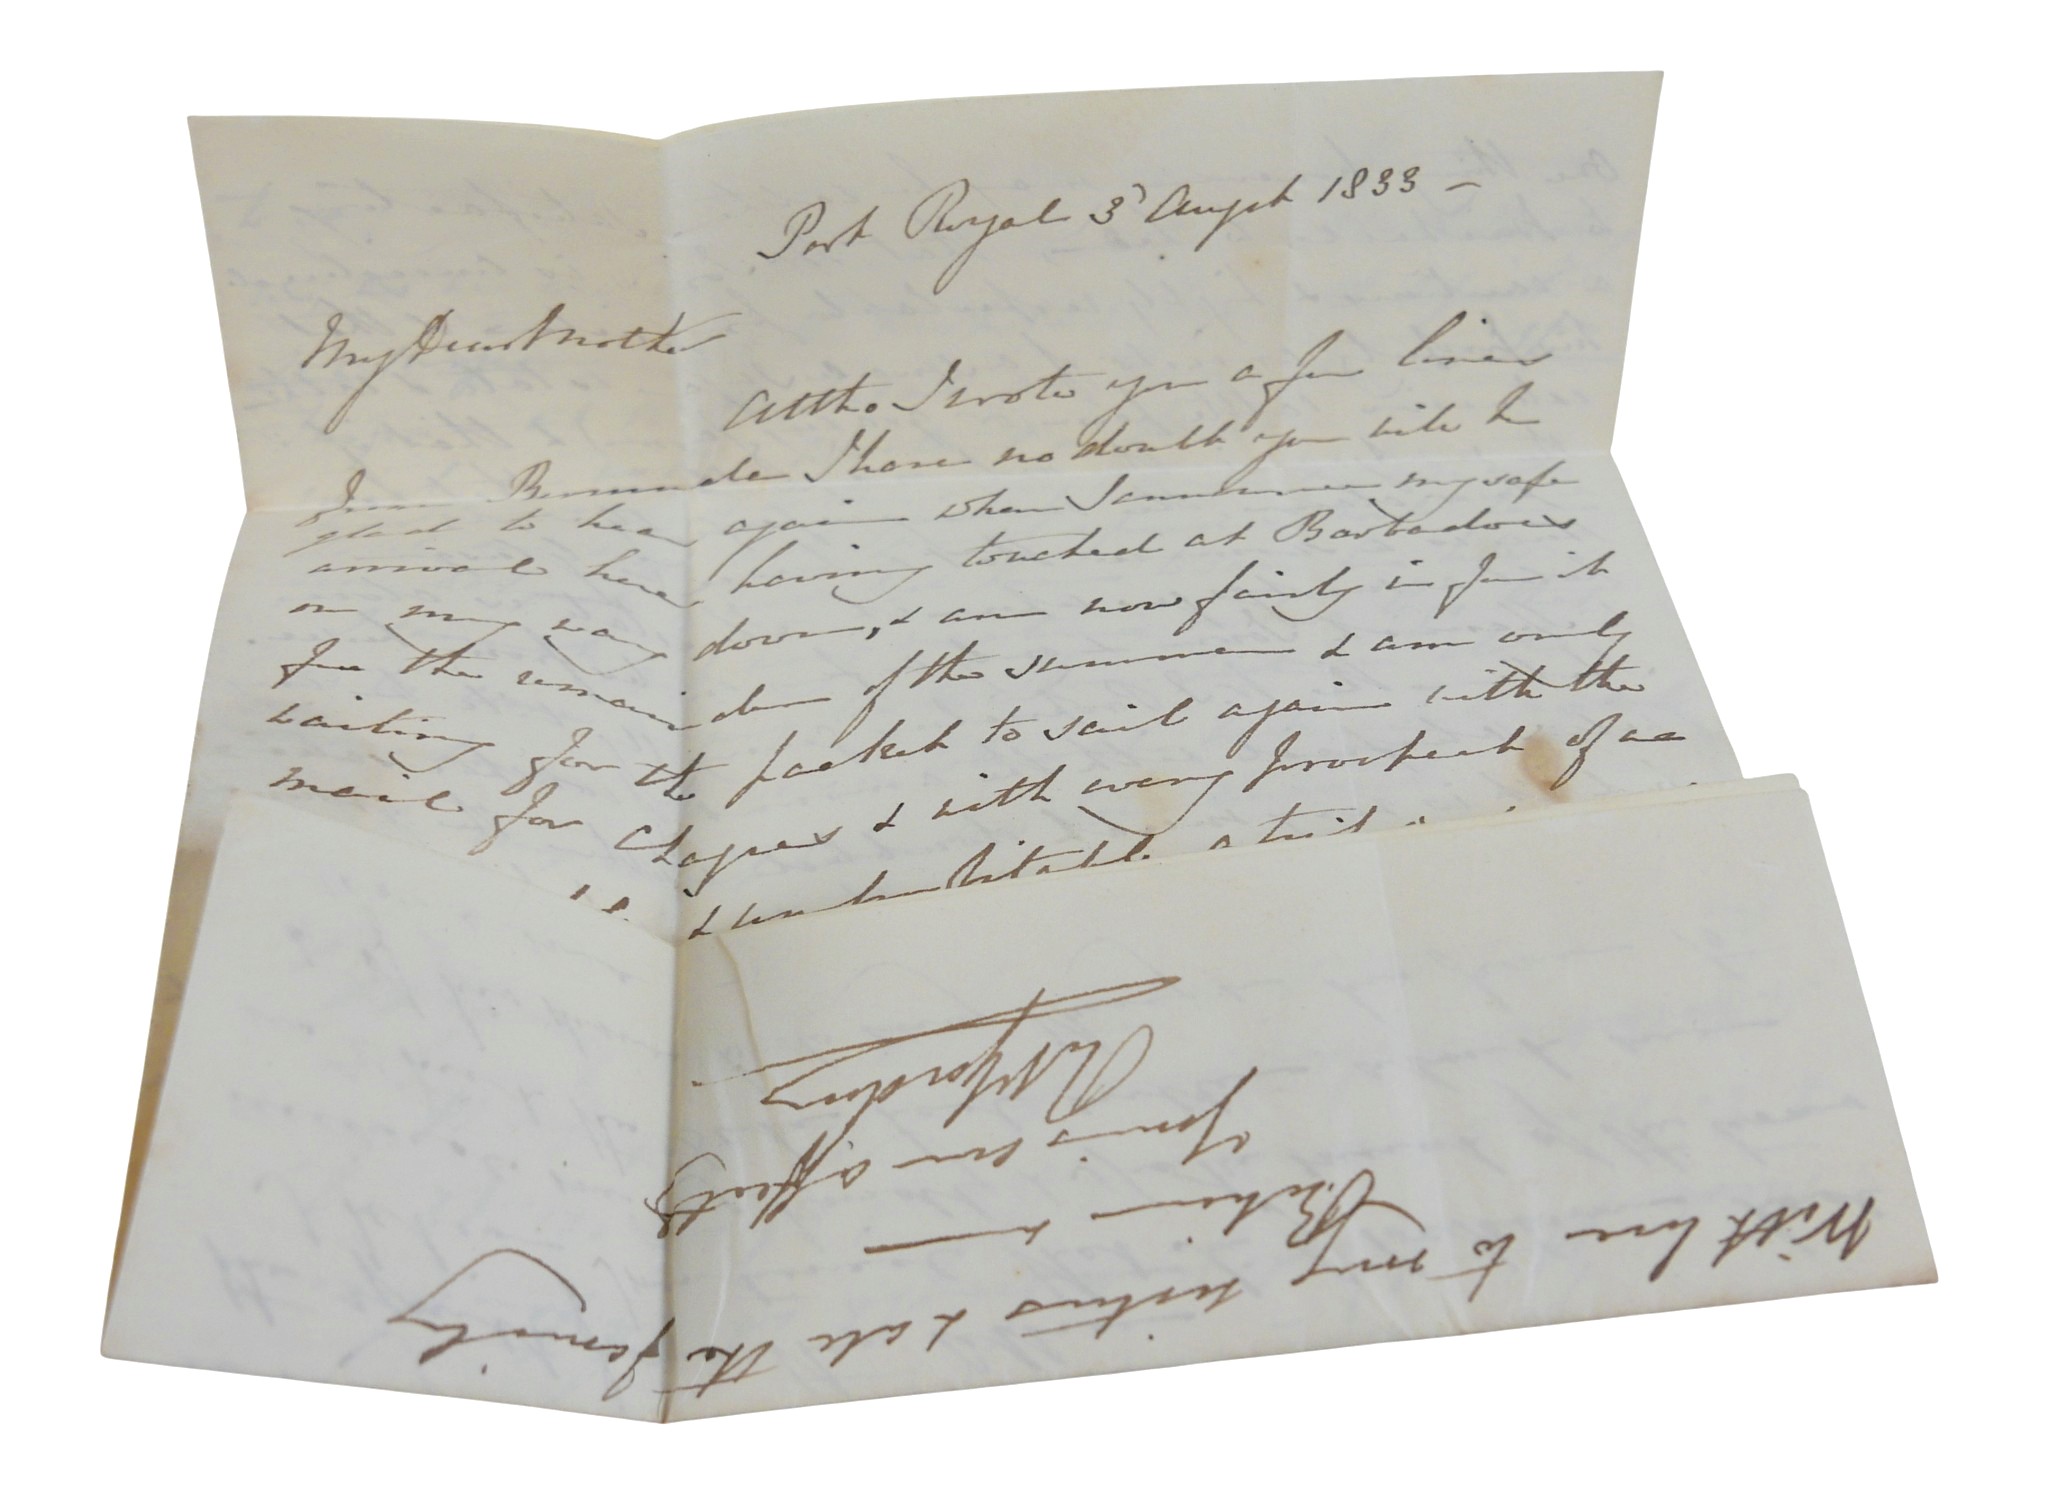 Port Royal 3d Augst 1833 —
My Dear Mother
Altho I wrote you a few lines
from Bermuda I have no doubt you will be
glad to hear again when I announce my safe
arrival here having touched at Barbadoes
on my way down, & am now fairly in for it
for the remainder of the summer & am only
waiting for the packet to sail again with the
mail for Chagres & with every prospect of
&
With love to my sisters & all the family
Believe me —
Yours ever affectly